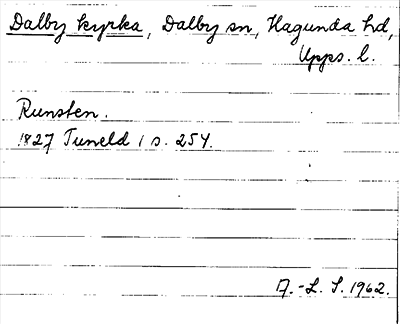 Dalby kyrka, Dalby sn, Hagunda hd,
Upps. l.
Runsten.
1827 Tuneld 1 s. 254.
A.-L. S. 1962.